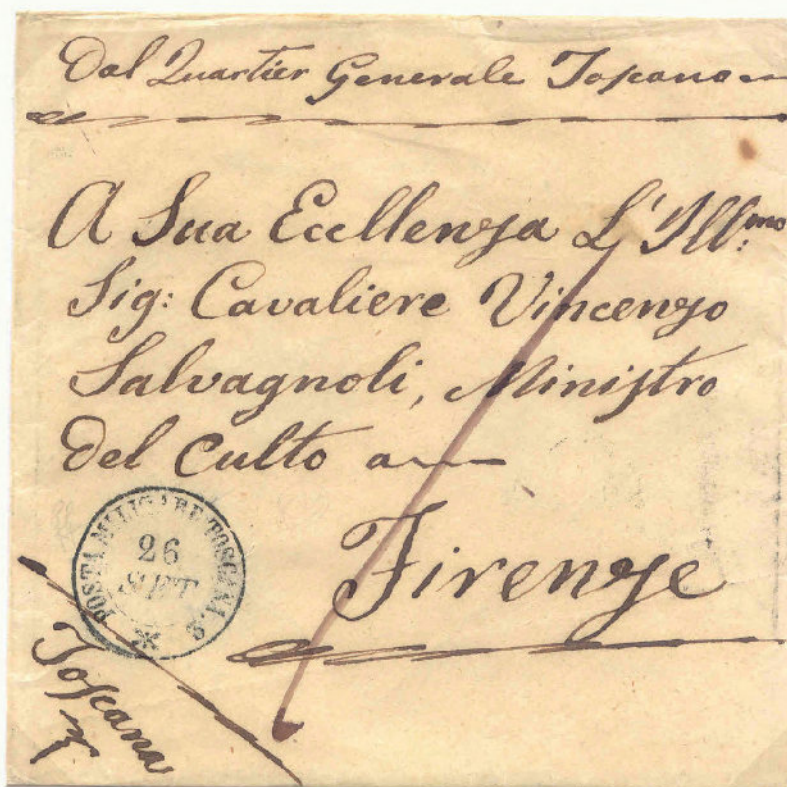 Dal Quartier Generale Toscano
A Sua Eccllenza L'Ill:mo
Sig: Cavaliere Vincenzo
Salvagnoli, Ministro
del Culto a
Firenze
POSTA MILITARE TOSCANA. 2
26
SET
Toscana